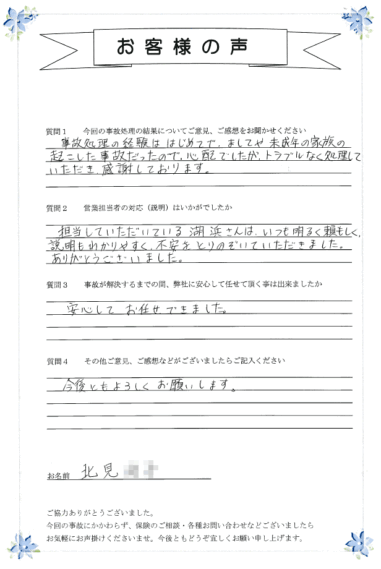 お客様の声
質問1 今回の事故処理の結果についてご意見、ご感想をお聞かせください
事故処理の経験は はじめてで、ましてや 未成年の家族の
起こした事故だったので、心配でしたが、トラブルなく処理して
いただき、感謝しております。
質問2 営業担当者の対応（説明）はいかがでしたか
担当していただいている 湖浜さんは、いつも明るく頼もしく、
説明もわかりやすく、不安をとりのぞいていただきました。
ありがとうございました。
質問3 事故が解決するまでの間、弊社に安心して任せて頂く事は出来ましたか
安心して お任せできました。
質問4 その他ご意見、ご感想などがございましたらご記入ください
今後ともよろしくお願いします。
お名前 北見
ご協力ありがとうございました。
今回の事故にかかわらず、保険のご相談・各種お問い合わせなどございましたら
お気軽にお声掛けくださいませ。今後ともどうぞ宜しくお願い申し上げます。